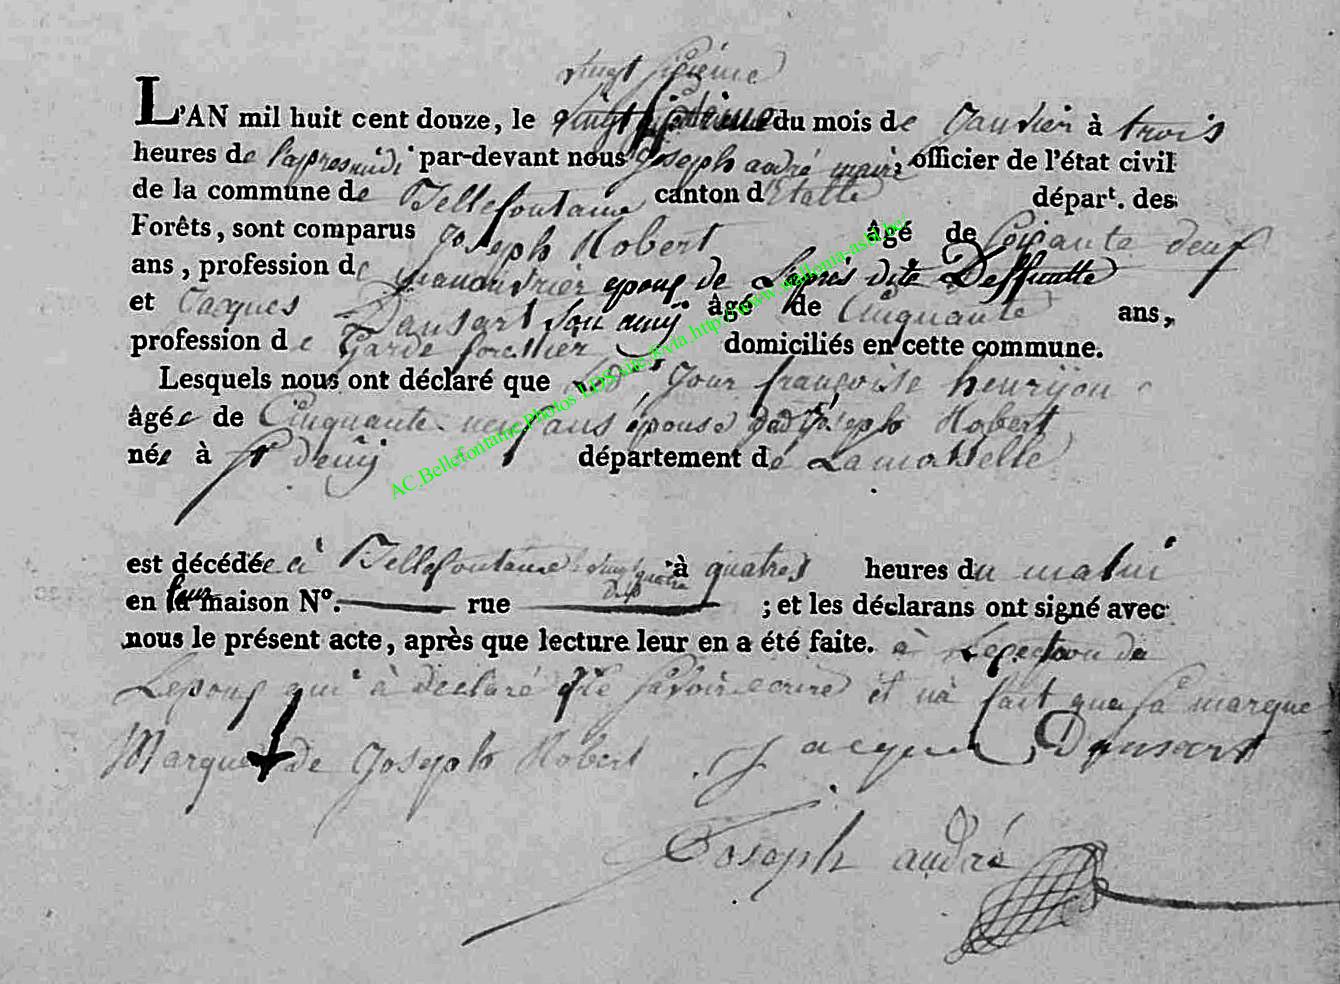 vingt sixieme
L'AN mil huit cent douze, le du mois de Janvier à trois
heures de l'apresmidi par-devant nous Joseph andré maire, officier de l'état civil
de la commune de Bellefontaine canton d'Etalle départ. des
Forêts, sont comparus Joseph Robert âgé de soixante deux
ans, profession de manouvrier epoux de Lapris dite Deffuntte
et Jacques Dansart son amy âgé de Cinquante ans,
profession de Garde forestier domiciliés en cette commune.
Lesquels nous ont déclaré que jour françoise henrijon
âgée de Cinquante neuf ans épouse dud. Joseph Robert
née à st deny département de Lamoselle
est décédée à Bellefontaine vingt quatre à quatres heures du matin
en leur maison N°. rue ; et les déclarans ont signé avec
nous le présent acte, après que lecture leur en a été faite. à Lexeption de
Lepoux qui à declaré ne savoir ecrire et n'à fait que sa marque
Marque de Joseph Robert Jacques Dansart
Joseph andré
AC Bellefontaine Photos LDS site & via http://www.wallonia-asbl.be/